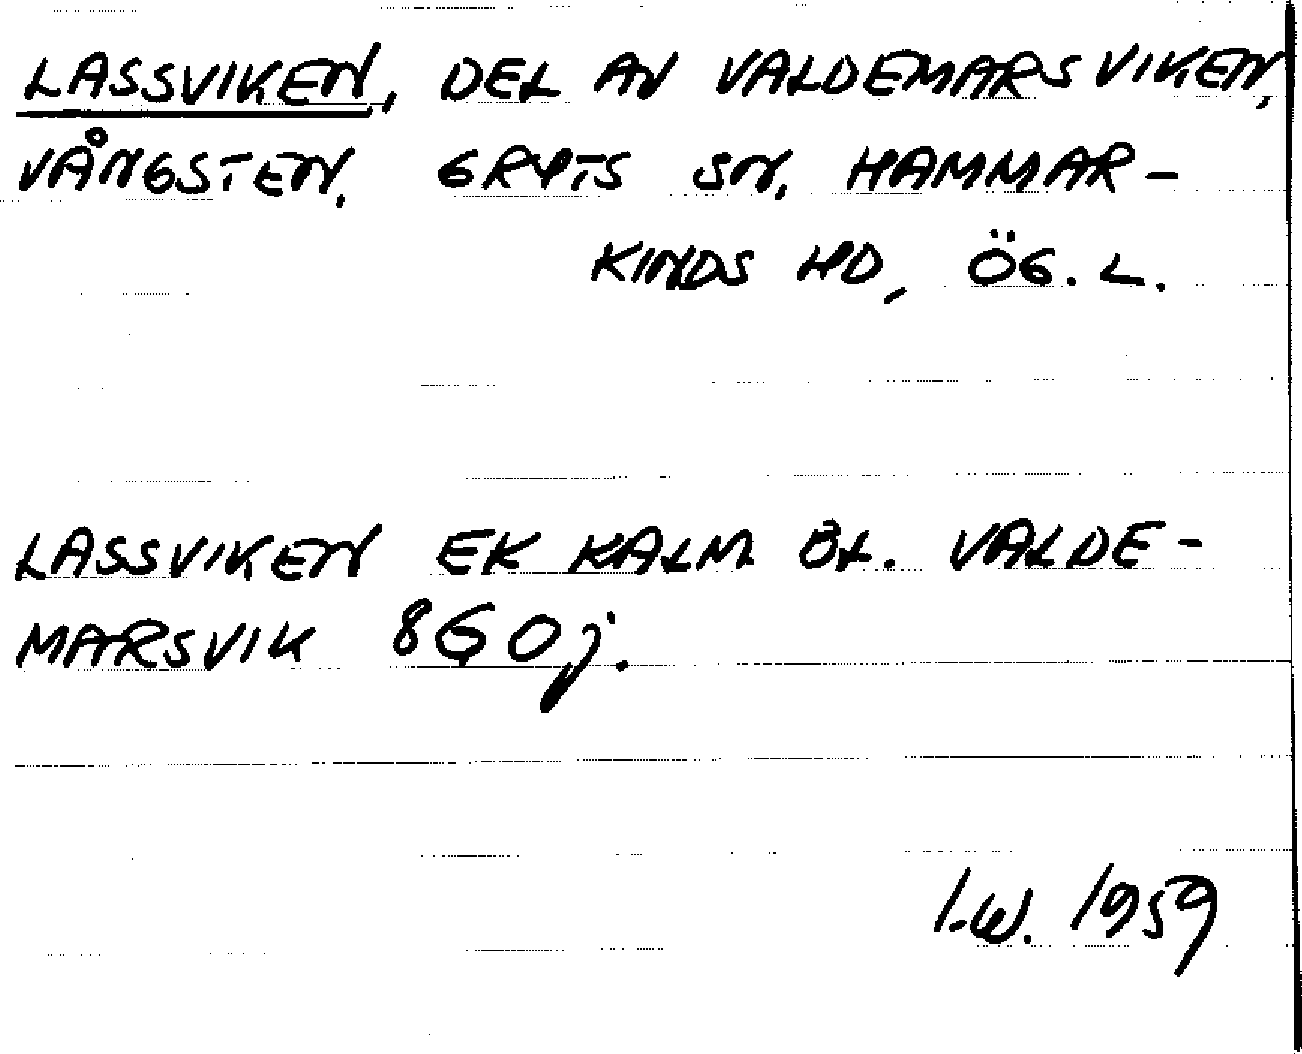 LASSVIKEN, DEL AV VALDEMARSVIKEN,
VÅNGSTEN. GRYTS SN. HAMMAR-
KINDS HD, ÖG. L.
LASSVIKEN EK KALM BL. VALDE-
MARSVIK 8G0j.
I.W. 1959